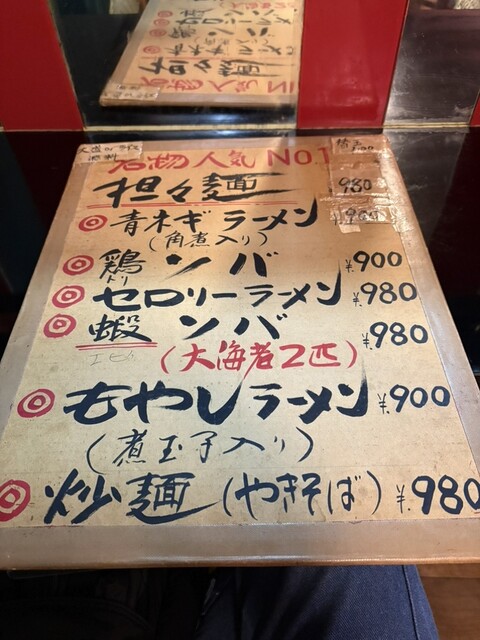 名物人気No1
担々麺 980
◎青ネギラーメン
(角煮入り)
◎鶏ソバ ¥900
トリ
◎セロリーラーメン ¥980
◎蝦ソバ ¥980
エビ
(大海老2匹)
◎もやしラーメン ¥900
(煮玉子入り)
◎炒麺(やきそば) ¥980